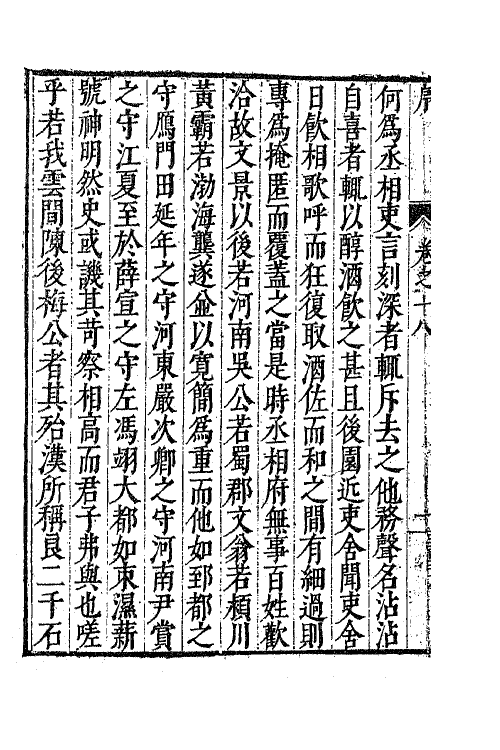 卷之十八
何為丞相吏言刻深者輒斥去之他務聲名沾沾
自喜者輒以醇酒飲之甚且後園近吏舍聞吏舍
日飲相歌呼而狂復取酒佐而和之間有細過則
專為掩匿而覆蓋之當是時丞相府無事百姓歡
洽故文景以後若河南吳公若蜀郡文翁若潁川
黃霸若渤海龔遂並以寬簡為重而他如郅都之
守鴈門田延年之守河東嚴次卿之守河南尹賞
之守江夏至於薛宣之守左馮翊大都如束濕薪
號神明然史或譏其苛察相高而君子弗與也嗟
乎若我雲間陳後梅公者其殆漢所稱良二千石